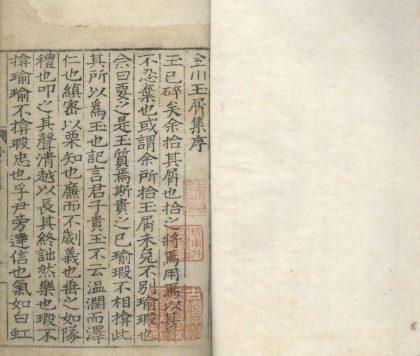 金川玉屑集序
玉已碎矣余拾其屑也拾之將焉用焉以其
不忍棄也或謂余所拾玉屑未免不別瑜瑕也
余曰要之是玉質焉斯貴之已瑜瑕不相揜此
其所以為玉也記言君子貴玉不云温潤而澤
仁也縝密以栗知也廉而不劌義也垂之如隊
禮也叩之其聲清越以長其終詘然樂也瑕不
揜瑜瑜不揜瑕忠也孚尹旁達信也氣如白虹